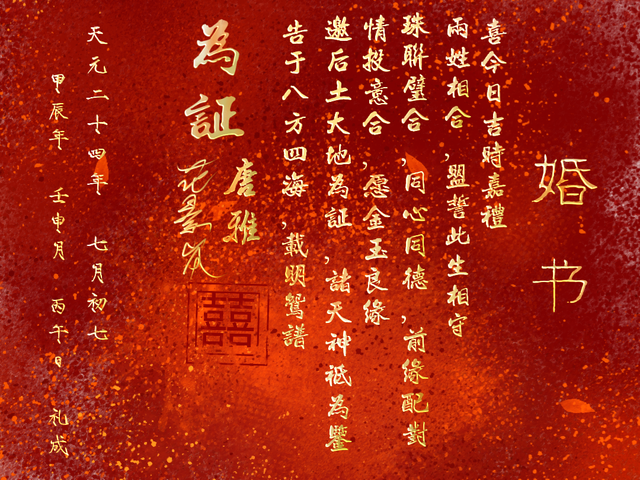 婚书
喜今日吉時嘉禮
兩姓相合，盟誓此生相守
珠聯璧合，同心同德，前緣配對
情投意合，愿金玉良緣
邀后土大地為証，諸天神祗為鑒
告于八方四海，載明鴛譜
為証
唐雅
囍
天元二十四年 七月初七
甲辰年 壬申月 丙午日 礼成